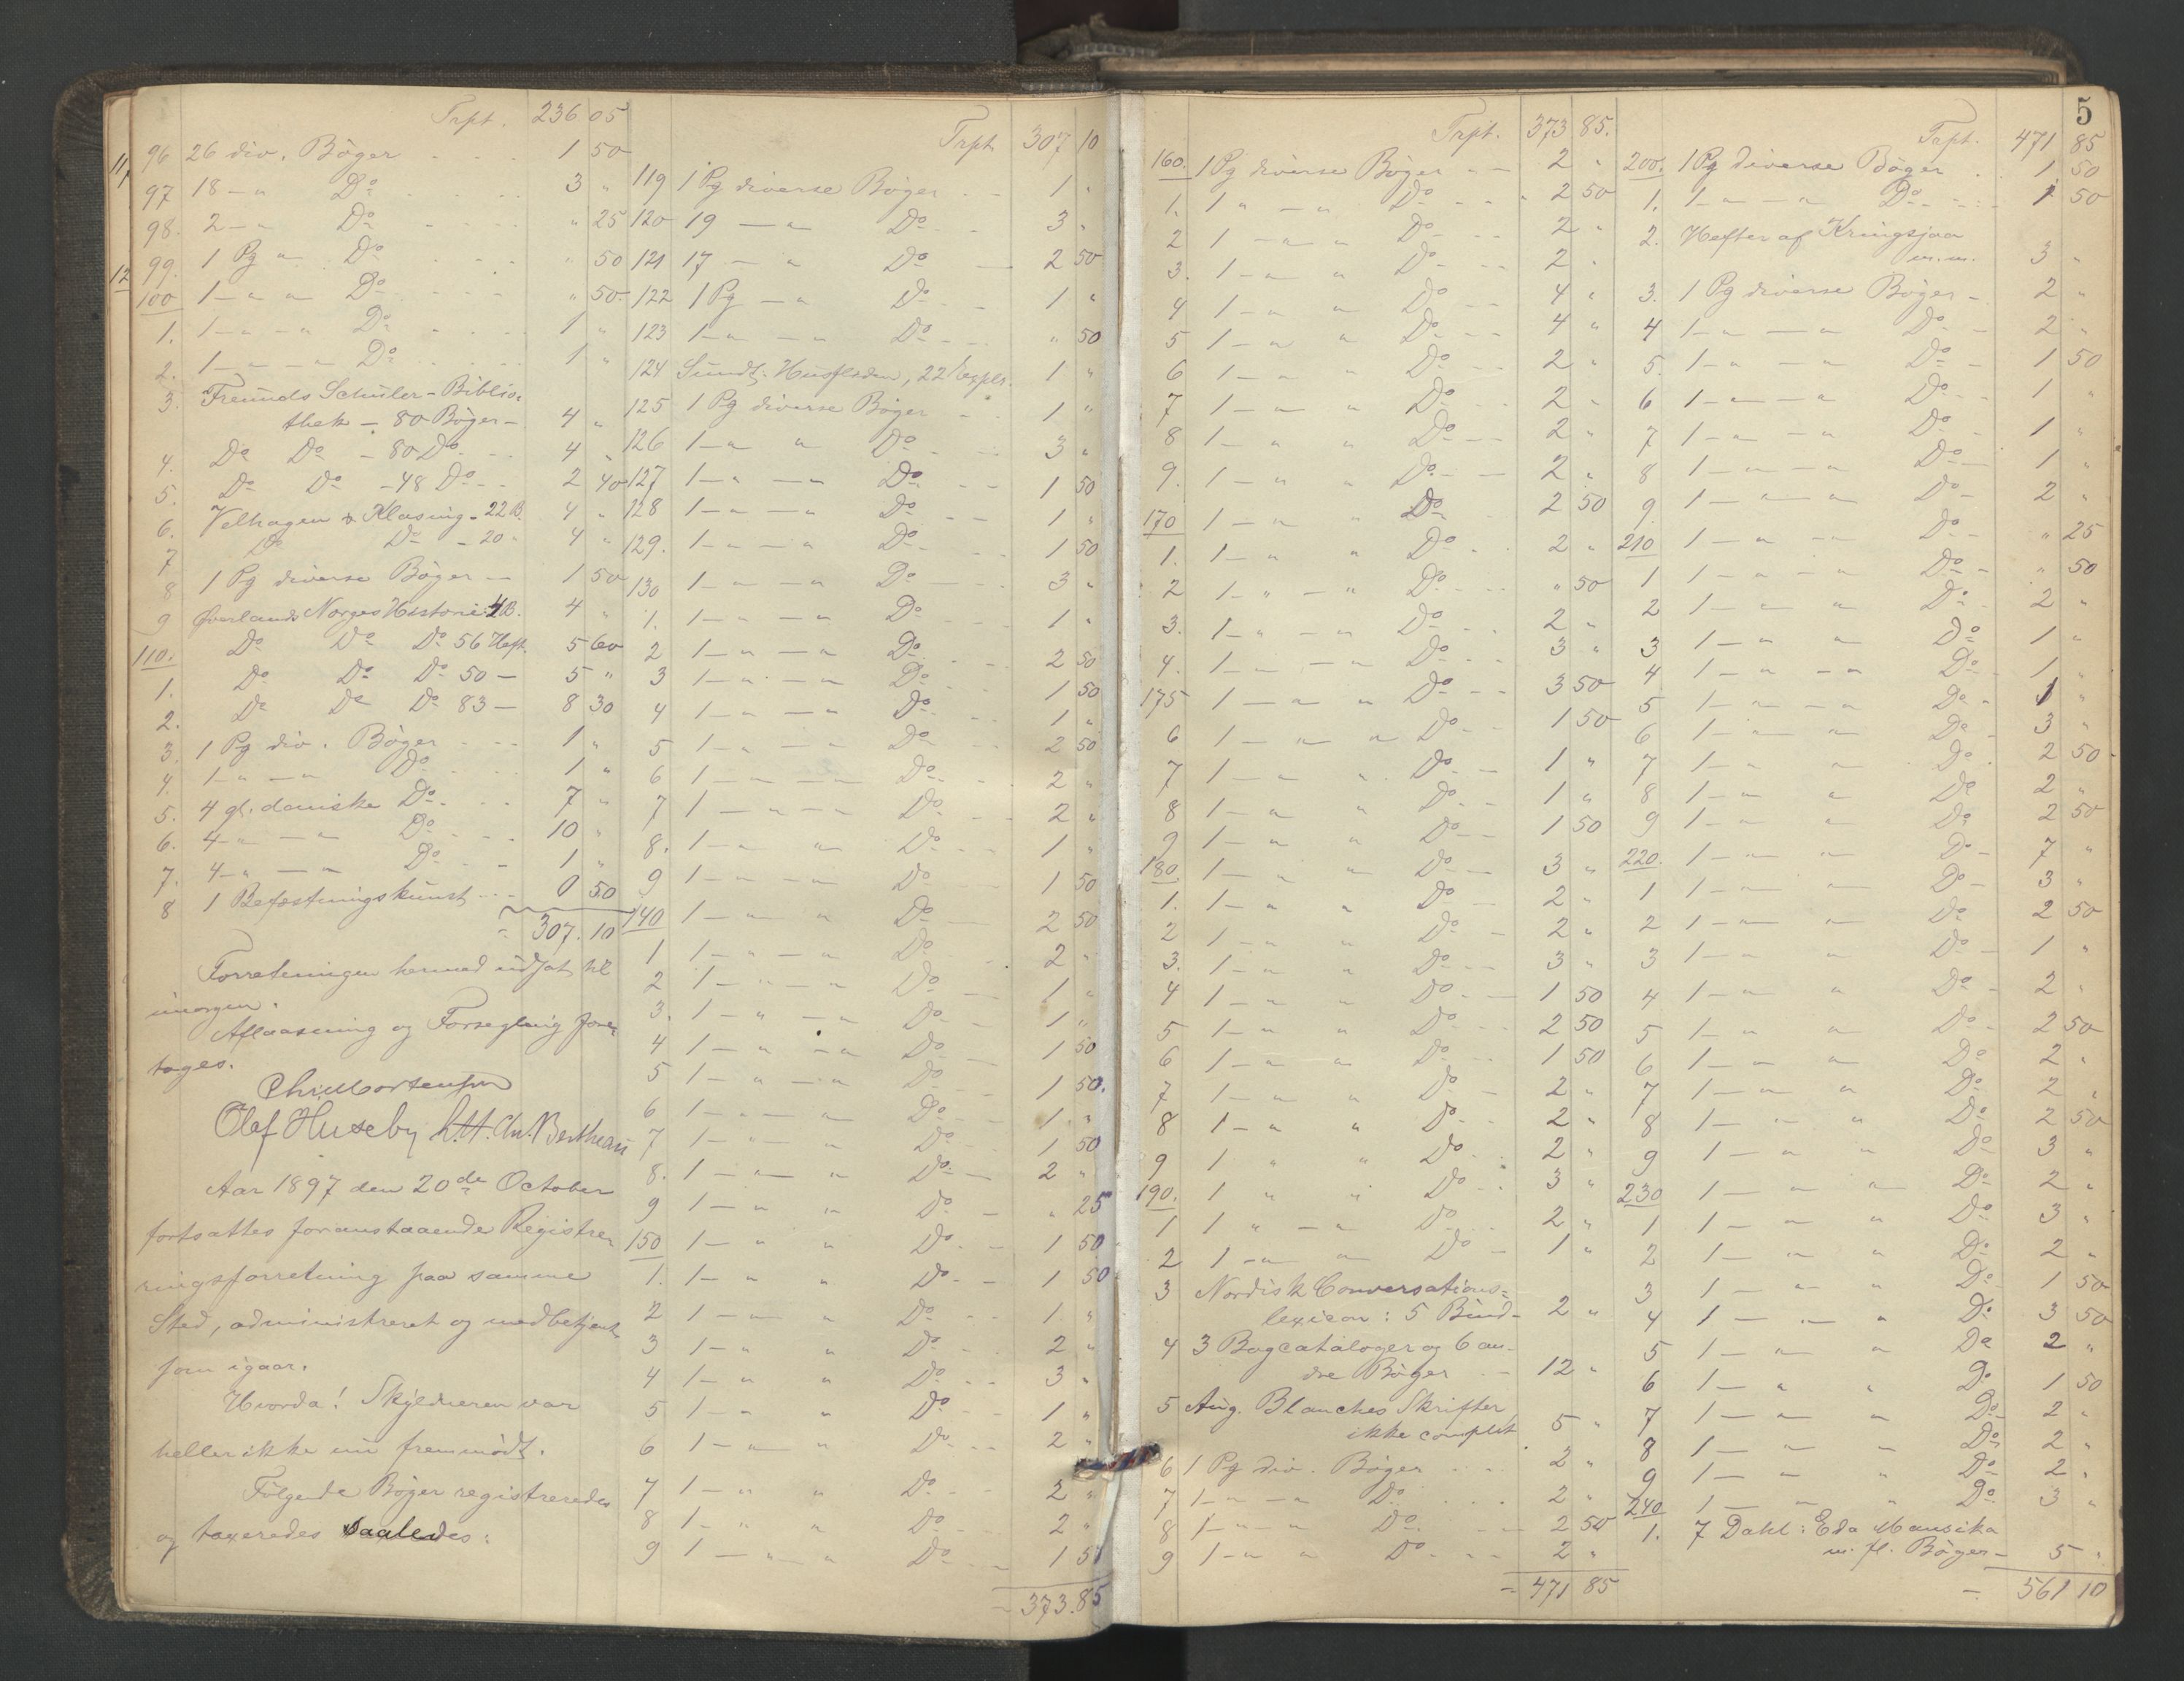 Trpt. 236 05
11/ 96 26 div. Bøger 1 50
97 18 — " Do 3 "
98. 2 — " Do " 25
12 99. 1 Pg " Do " 50
100 1 — " " Do " 50
1. 1 — " — " Do 1 "
2. 1 — " — " Do 1 "
3. Freunds Schüler-Biblio-
thek — 80 Bøger — 4 "
4. Do Do — 80 Do 4 "
5. Do Do — 48 Do 2 40
6. Velhagen & Klasing — 22 B. 4 "
7 Do Do — 20 " 4 "
8 1 Pg diverse Bøger — 1 50
9 Øverlands Norges Historie: 4 B. 4 "
110. Do Do Do 56 Heft. 5 60
1. Do Do Do 50 — 5 "
2. Do Do Do 83 — 8 30
3. 1 Pg div. Bøger 1 "
4. 1 — " — " Do 1 "
5. 4 gl. danske Do 7 "
6. 4 — " — " Do 10 "
7. 4 — " — " Do 1 "
8 1 Befæstningskunst 0 50
= 307. 10
Forretningen hermed udsat til
imorgen.
Aflaasning og Forsegling fore-
toges.
Chr. Mortensen
Olaf Huseby H. H. Chr. Bertheau
Aar 1897 den 20de October
fortsattes foranstaaende Registre-
ringsforretning paa samme
Sted, administreret og medbetjent
som igaar.
Hvorda! Skyldneren var
heller ikke nu fremmødt.
Følgende Bøger registreredes
og taxeredes saaledes:
Trpt. 307 10
119 1 Pg diverse Bøger 1 "
120 19 — " Do 3 "
121 17 — " Do 2 50
122 1 Pg — " Do 1 "
123 1 — " — " Do " 50
124 Sundt: Husfliden, 22 expl. 1 "
125 1 Pg diverse Bøger 1 "
126 1 — " " Do 3 "
127 1 — " — " Do 1 50
128 1 — " — " Do 1 "
129. 1 — " — " Do 1 50
130 1 — " — " Do 3 "
1. 1 — " — " Do 1 "
2 1 — " — " Do 2 50
3 1 — " — " Do 1 50
4 1 — " — " Do 1 "
5 1 — " — " Do 2 50
6 1 — " — " Do 2 "
7 1 — " — " Do 2 "
8. 1 — " " Do 1 "
9 1 — " — " Do 1 50
140 1 — " " Do 2 50
1 1 — " — " Do 2 "
2 1 — " — " Do 1 "
3. 1 — " — " Do 1 "
4 1 — " — " Do 1 50
5 1 — " — " Do 1 50.
6 1 — " — " Do 1 "
7 1 — " — " Do 1 50
8. 1 — " " Do 2 "
9 1 — " " Do " 25
150 1 — " " Do 1 50
1. 1 — " " Do 1 50
2 1 — " " Do 1 "
3 1 — " " Do 2 "
4 1 — " " Do 3 "
5 1 — " " Do 1 "
6 1 — " " Do 2 "
7 1 — " " Do 2 "
8 1 — " " Do 2 "
9 1 — " " Do 1 50
= 373.85
Trpt. 373 85.
160. 1 Pg diverse Bøger — 2 "
1. 1 " — " Do 2 50
2 1 — " " Do 2 "
3. 1 — " " Do 2 "
4 1 — " " Do 4 "
5 1 — " " Do 4 "
6 1 — " " Do 2 "
7 1 — " " Do 2 "
8 1 — " " Do 2 "
9. 1 — " " Do 2 "
170 1 — " " Do 2 50
1. 1 — " " Do 2 "
2 1 — " — " Do " 50
3. 1 — " — " Do 2 "
4. 1 — " — " Do 3 "
175 1 — " " Do 3 50
6 1 — " " Do 1 50
7 1 — " " Do 1 "
8 1 — " " Do 1 "
9 1 — " " Do 1 50
180. 1 — " " Do 3 "
1. 1 — " " Do 2 "
2 1 — " " Do 2 "
3. 1 — " " Do 3 "
4 1 — " " Do 1 50
5 1 — " " Do 2 50
6 1 — " " Do 1 50
7 1 — " " Do 2 "
8 1 — " " Do 2 "
9 1 " " Do 2 "
190. 1 " " Do 3 "
1 1 " — " Do 2 "
2 1 — " " Do 1 "
3 Nordisk Conversations-
lexicon: 5 Bind — 2 "
4 3 Bogcataloger og 6 an-
dre Bøger 12 "
5 Aug. Blanches Skrifter
ikke complet 5 "
6 1 Pg div. Bøger 2 "
7 1 — " — " Do 2 "
8 1 — " — " Do 2 50
9 1 — " " Do 2 "
= 471 85
5
Trpt. 471 85
200. 1 Pg diverse Bøger 1 50
1. 1 — " — " Do 1 50
2. Hefter af Kringsjaa
m.m. 3 "
3. 1 Pg diverse Bøger — 2 "
4 1 — " — " Do 2 "
5. 1 — " — " Do 1 50
6 1 — " — " Do 1 "
7 1 — " — " Do 1 "
8 1 — " — " Do 1 "
9 1 — " " Do 2 "
210 1 — " — Do " 25
1 1 — " — " Do " 50
2 1 — " " Do 2 "
3 1 — " " Do 1 "
4 1 — " — " Do 1 "
5 1 — " — " Do 1 "
6 1 — " " Do 3 "
7 1 — " " Do 2 50
8 1 — " " Do 2 "
9 1 — " " Do 2 50
220. 1 — " " Do 7 "
1 1 — " " Do 3 "
2 1 — " " Do 2 50
3 1 — " " Do 1 "
4 1 — " " Do 2 "
5 1 — " " Do 2 50
6 1 — " " Do 2 "
7 1 — " " Do 2 "
8 1 — " " Do 2 50
9 1 — " " Do 3 "
230 1 — " " Do 2 "
1 1 — " " Do 3 "
2 1 — " " Do 2 "
3 1 — " " Do 1 50
4 1 — " " Do 3 50
5 1 — " " Do 2 "
6 1 — " " Do 1 50
7 1 — " " Do 2 "
8 1 — " " Do 2 "
9 1 — " " Do 2 "
240. 1 — " " Do 3 "
1. 7 Dahl: Eda Mansika
m. fl. Bøger — 5 "
= 561 10